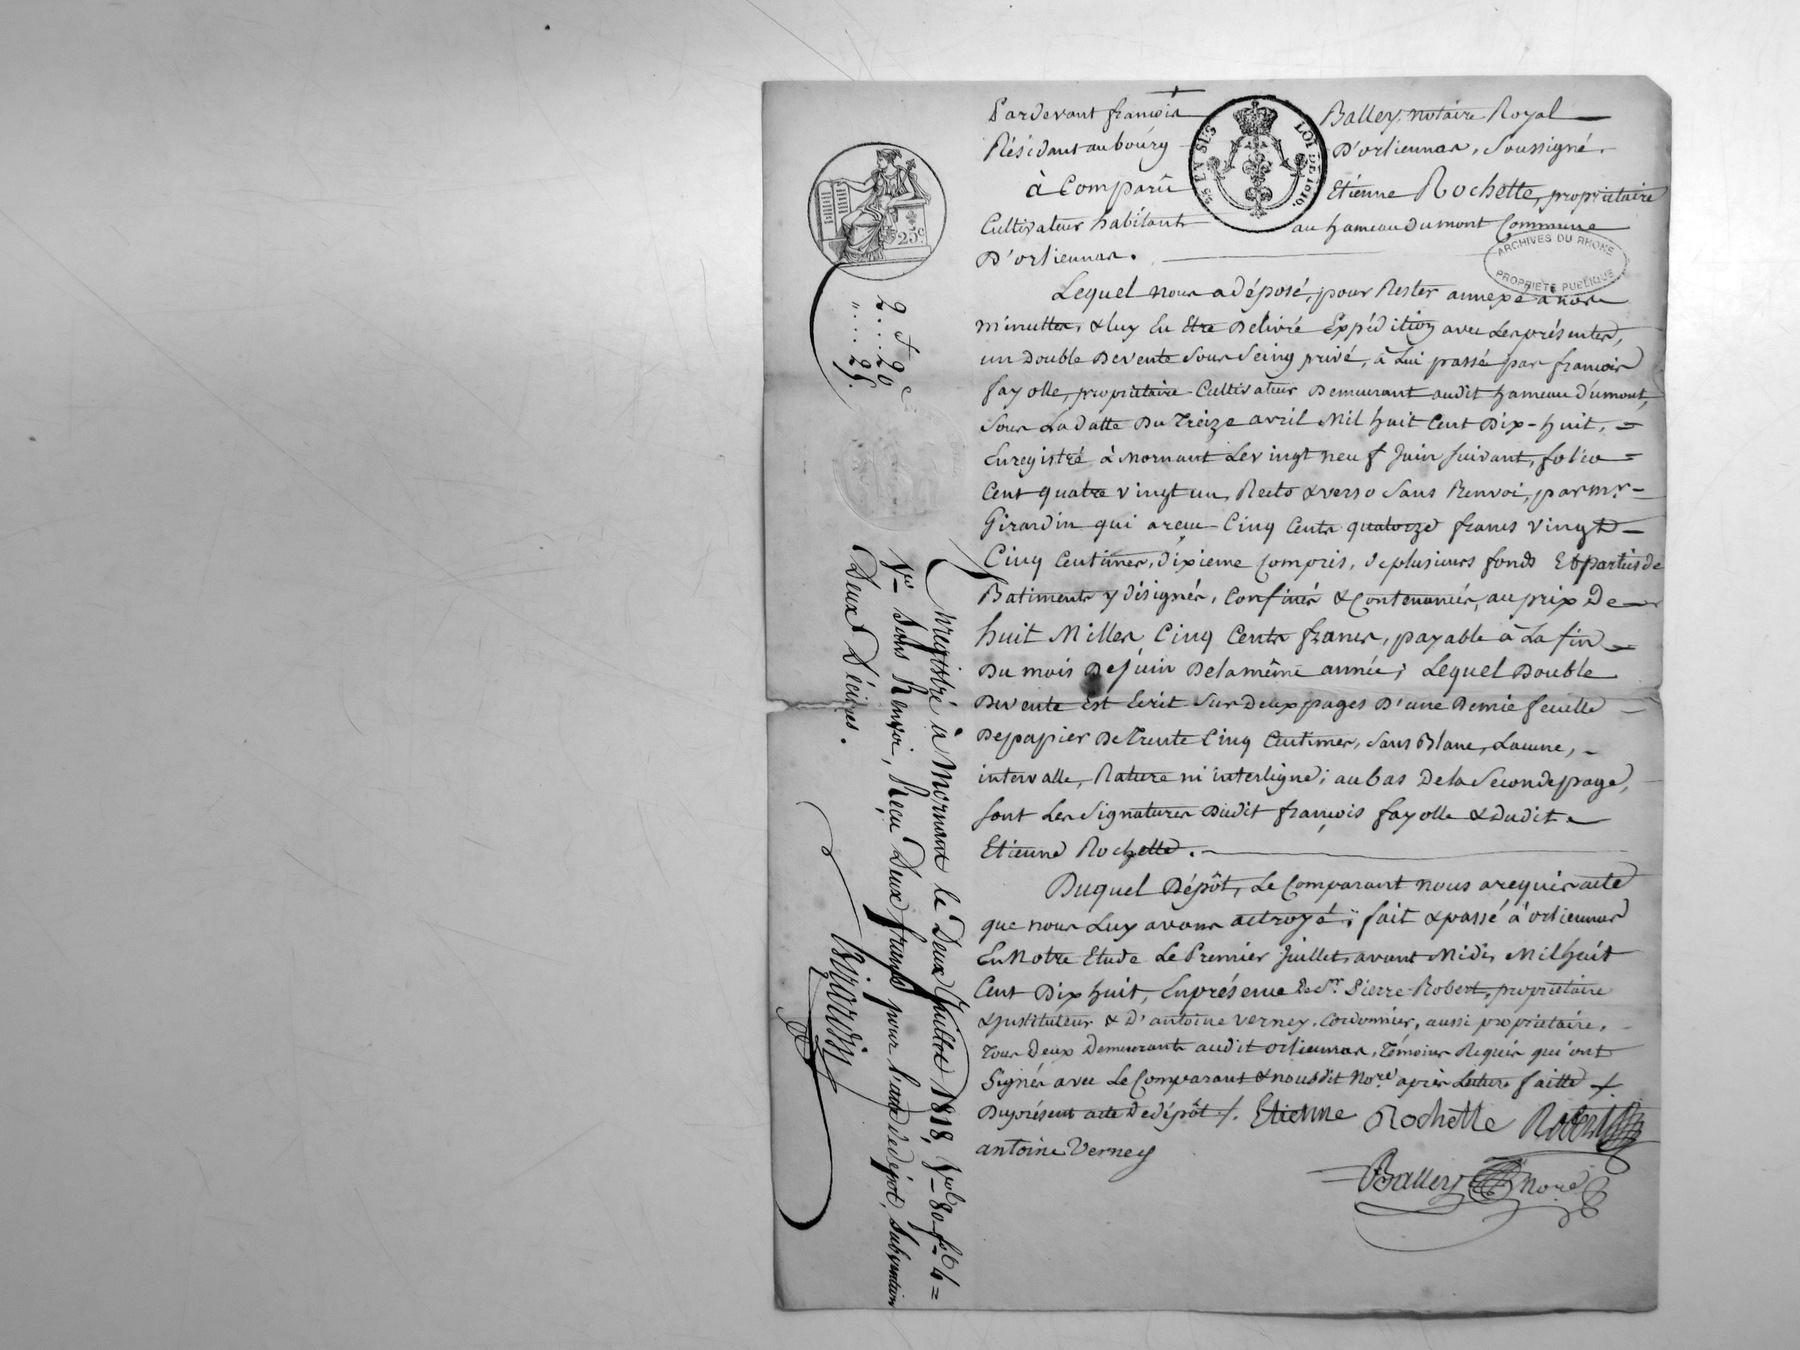 Pardevant françois Balley, notaire Royal
Résidant au bourg D'orliennas, Soussigné.
à Comparû Etiénne Rochette, propriétaire
Cultivateur habitant au hameau du mont Commune
D'orliennas.
Lequel nous a déposé, pour Rester annexé à nos
minuttes, & luy En Etre Delivré Expédition avec Les présentes,
un Double De vente Sous Seing privé, à Lui passé par françois
fayolle, propriétaire Cultivateur Demeurant audit hameau Dumont,
Sous La datte Du Treize avril Mil huit Cent Dix-huit, =
Enregistré à Mornant Le vingt neuf Juin Suivant, folio =
Cent quatre vingt un, Recto & verso Sans Renvoi, par Mr. -
Girardin qui a reçu Cinq Cents quatorze francs vingt -
Cinq Centimes, dixieme Compris, de plusieurs fonds Et parties de
Batiments y désignés, Confinés & Contenanciés, au prix De
huit Milles Cinq Cents francs, payable à La fin
Du mois De juin De la même année; Lequel Double
De vente Est Ecrit Sur Deux pages D'une Demie feuille -
De papier De Trente Cinq Centimes, Sans Blanc, Lacune, -
intervalle, Rature ni interligne; au bas De la Seconde page,
Sont Les Signatures Dudit françois fayolle & Dudit -
Etienne Rochette. -
Duquel Dépôt, Le Comparant nous a requis acte
que nous Luy avons actroyé; fait & passé à orliennas
En Notre Etude Le Premier Juillet, avant Midi, Mil huit
Cent Dix huit, En présence De Sr. Pierre Robert, propriétaire
& jnstituteur & D'antoine verney, Cordonnier, aussi propriétaire,
Tous Deux Demeurants audit orliennas, Témoins Requis qui ont
Signés avec Le Comparant & nousdit Nore. après Lecture faitte
Du présent acte De dépôt. Etienne Rochette Robert
antoine Verney
Balley Nore.
LOI DE 1816.
25 c
ARCHIVES DU RHONE
PROPRIÉTÉ PUBLIQUE
2 f 20 c
" .... 25.
Enregistré à Mornant le Deux Juillet 1818, vol 80 fo 4 =
vo Sans Renvoi, Reçu Deux francs pour l'acte de dépôt, Subvention
Deux Décimes.
Girardin